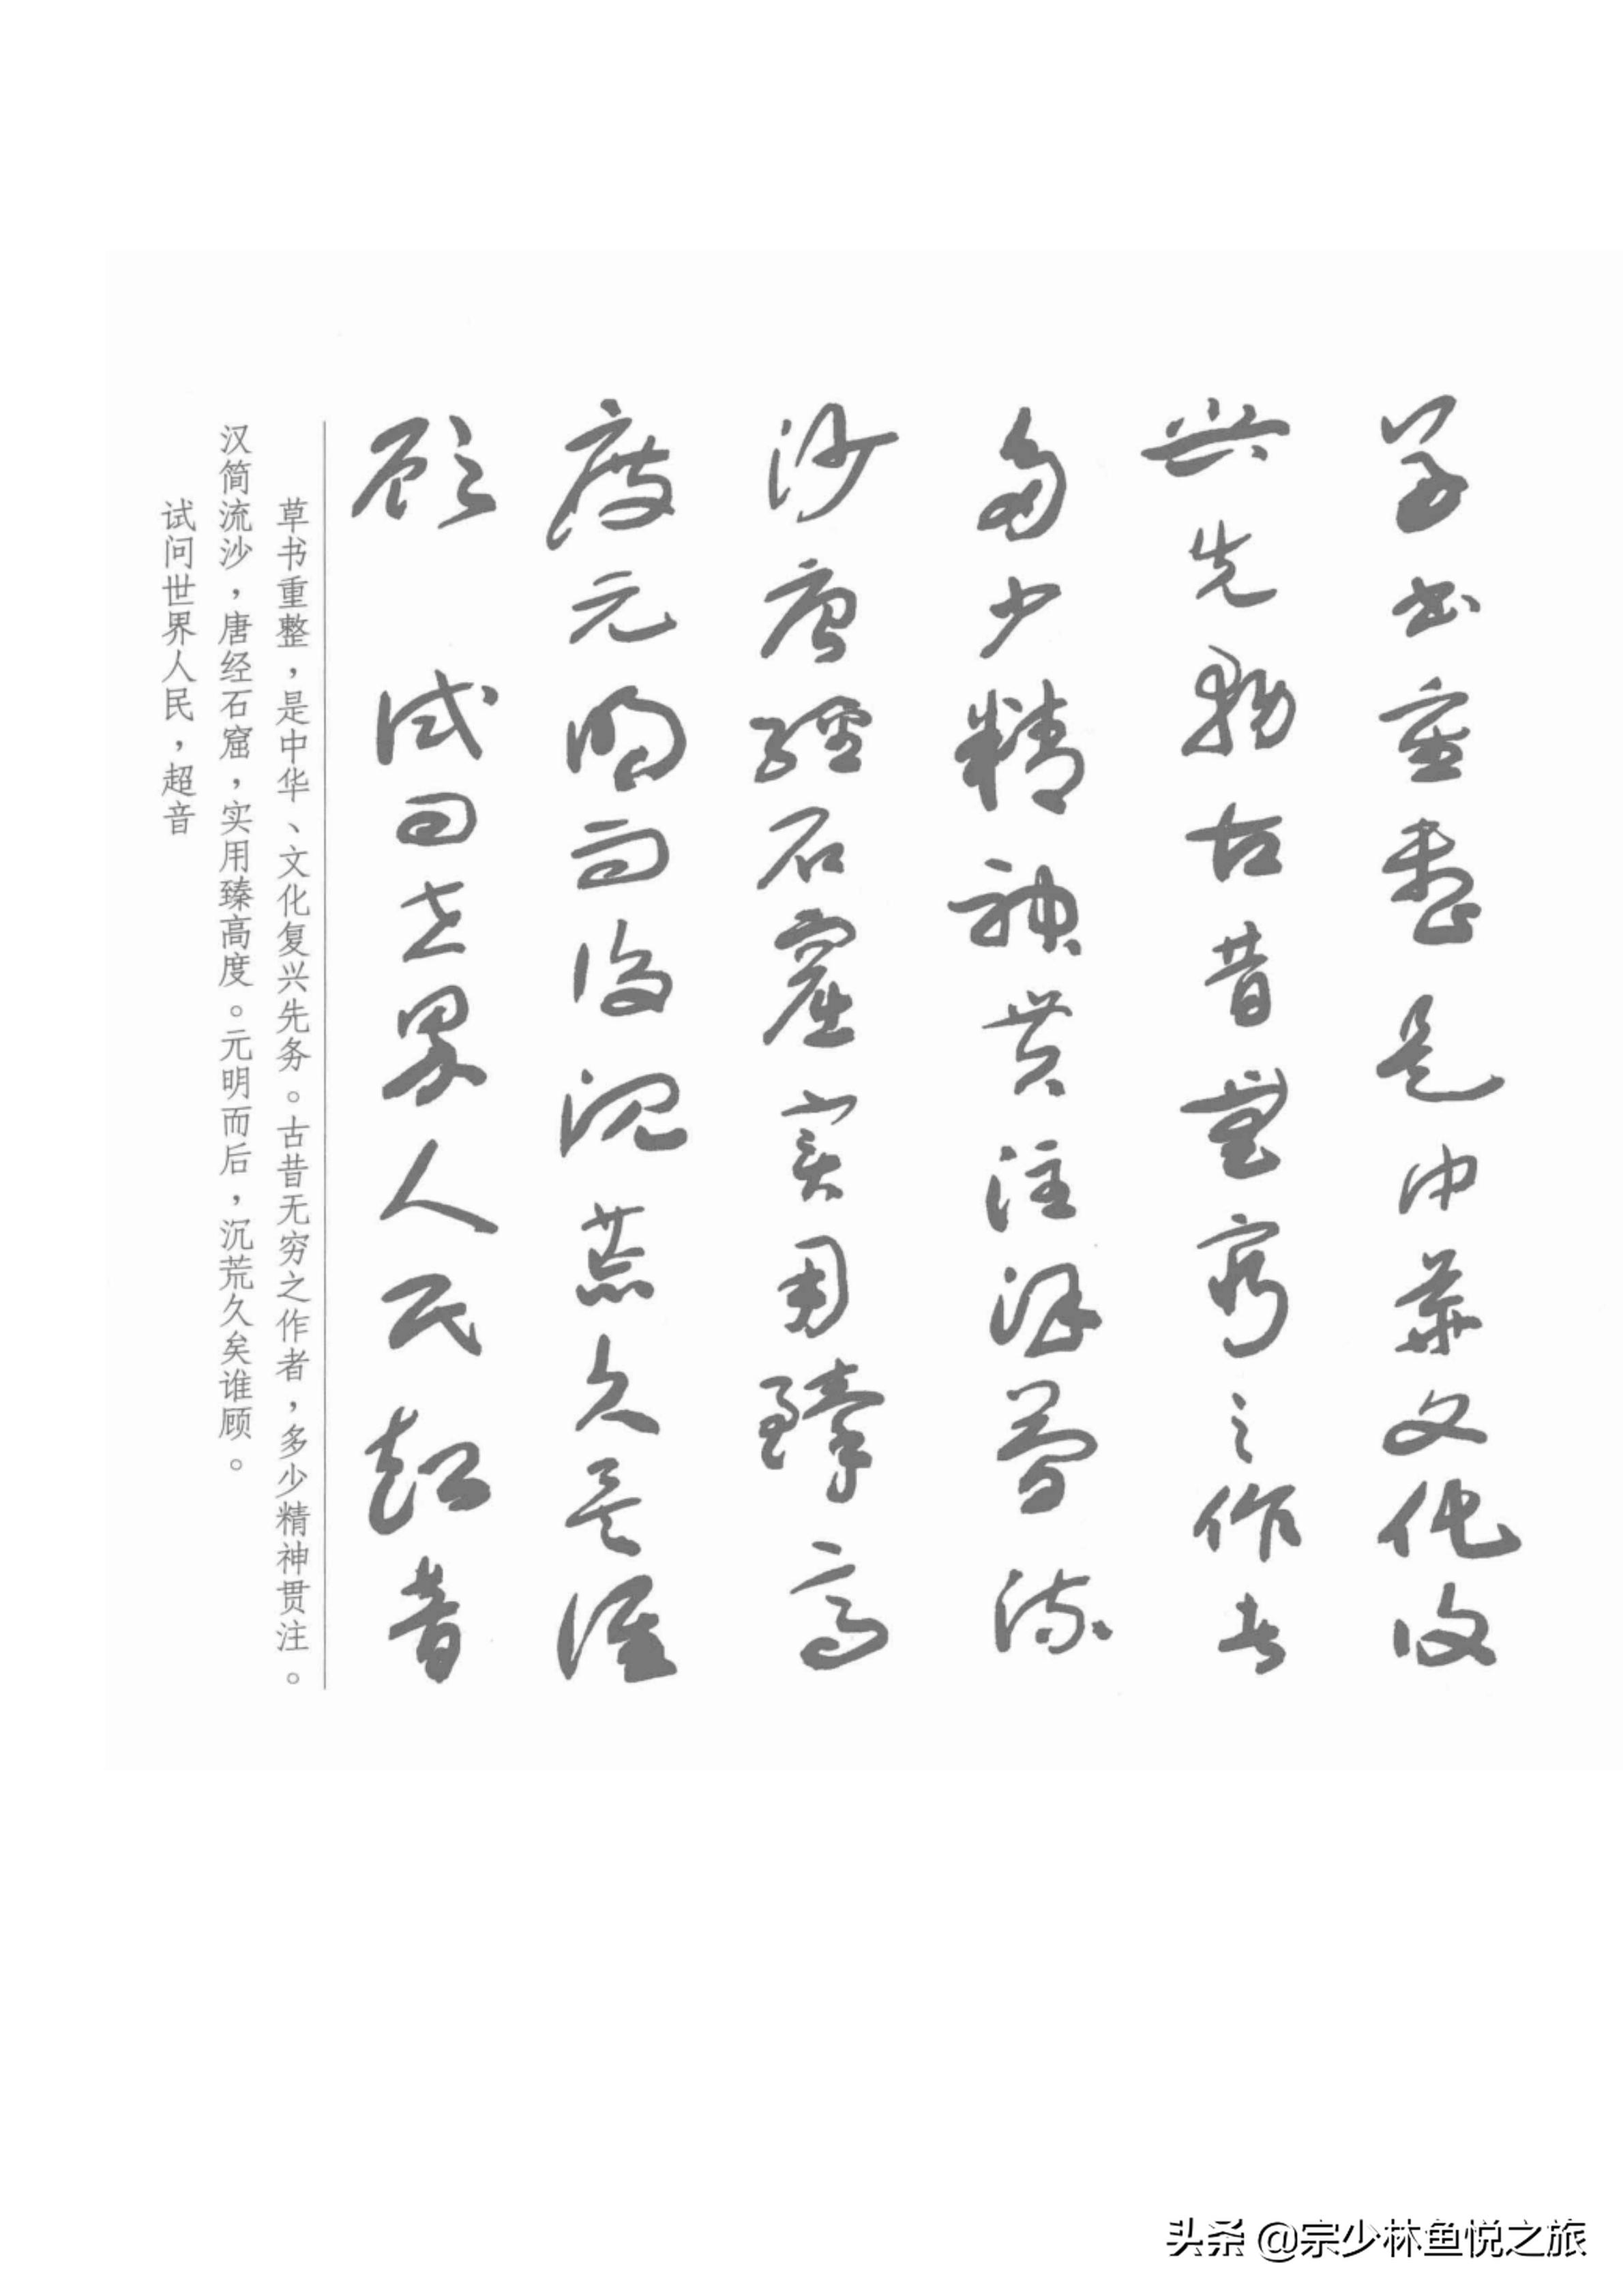 草书重整是中华文化复
兴先务古昔无穷之作者
多少精神贯注汉简流
沙唐经石窟实用臻高
度元明而后沉荒久矣谁
顾 试问世界人民超音
草书重整，是中华、文化复兴先务。古昔无穷之作者，多少精神贯注。
汉简流沙，唐经石窟，实用臻高度。元明而后，沉荒久矣谁顾。
试问世界人民，超音
头条 @宗少林鱼悦之旅